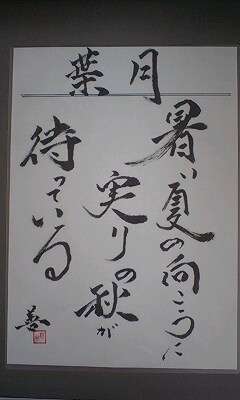 葉月
暑い夏の向こうに
実りの秋が
待っている
善